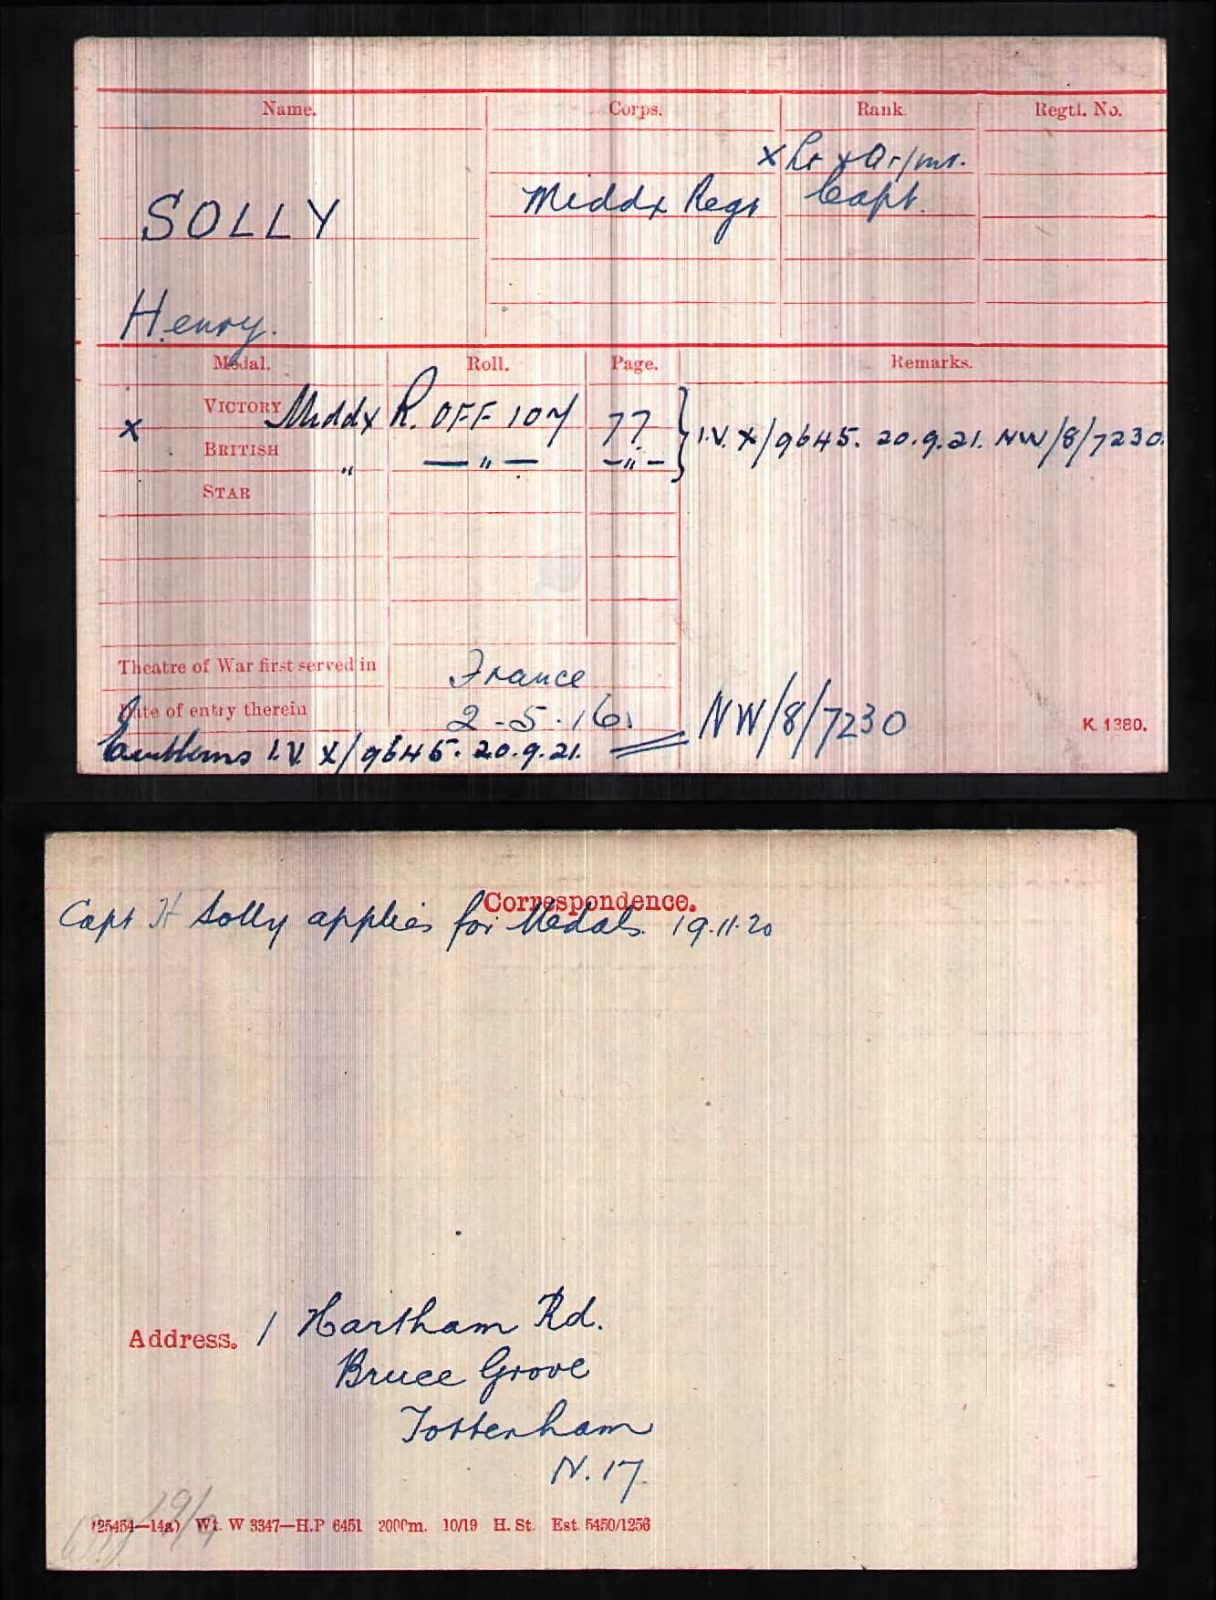 Name. Corps. Rank. Regtl. No.
x Lt x Qr/mr.
SOLLY Middx Regt Capt.
Henry.
Medal. Roll. Page. Remarks.
VICTORY Middx R. OFF 107 77 } I.V. X/9645. 20.9.21. NW/8/7230.
x
BRITISH " — " — — " —
STAR
Theatre of War first served in France
Date of entry therein 2-5-16. NW/8/7230 K. 1380.
Emblems I.V. X/9645. 20.9.21.
Correspondence.
Capt H Solly applies for Medals. 19.11.20
Address. 1 Hartham Rd.
Bruce Grove
Tottenham
N. 17.
(25454—14a) Wt. W 3347—H.P 6451 2000m. 10/19 H. St. Est. 5450/1256